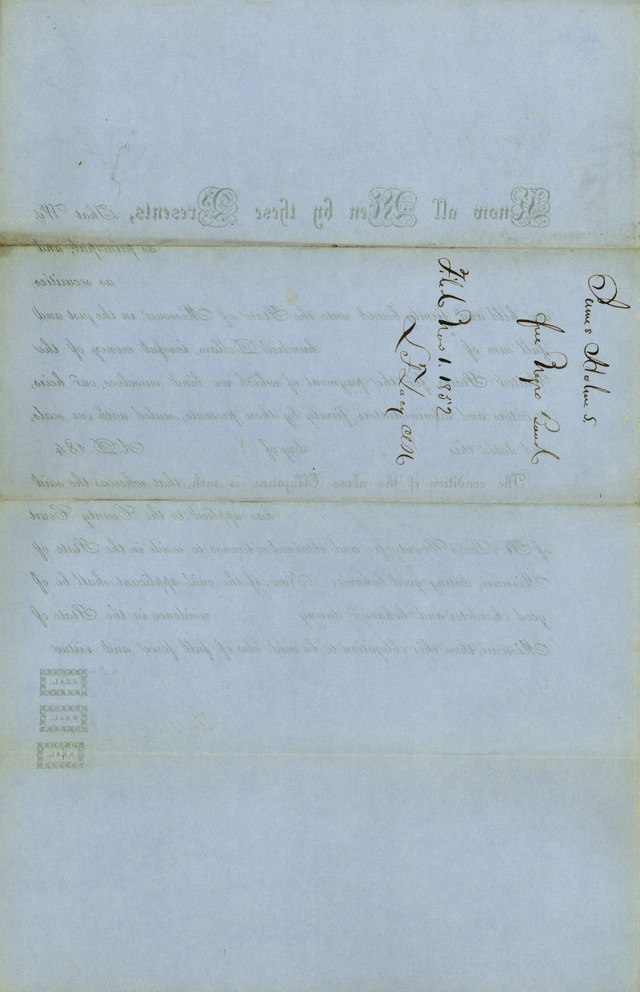 James Holmes.
free Negro Bond
Filed Nov 1. 1852
Know all Men by these Presents, That We
as principal, and
as securities
held and firmly bound unto the State of Missouri, in the just and
sum of hundred Dollars, lawful money of the
the payment of which we bind ourselves, our heirs,
and administrators, firmly by these presents, sealed with our seals,
dated this day of A.D. 184
The condition of the above Obligation is such, that whereas the said
has applied to the County Court
of St. Louis County for and obtained a license to reside in the State of
Missouri, during good behavior: Now, if the said applicant shall be of
good character and behavior during residence in the State of
Missouri, then this obligation to be void, else of full force and virtue
SEAL.
SEAL.
SEAL.